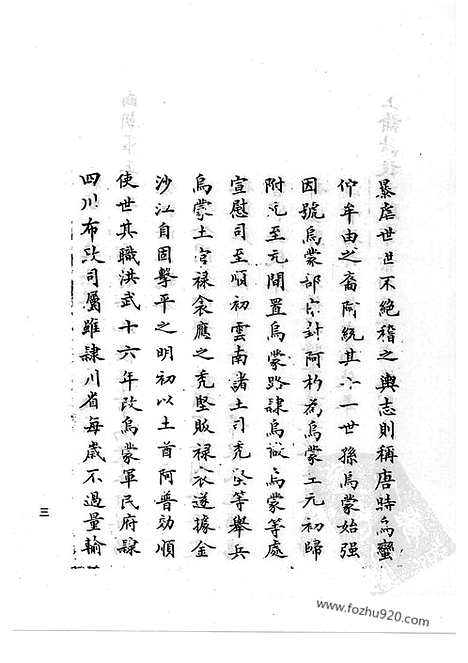 暴虐世世不絕稽之輿志則稱唐時烏蠻
仲牟由之裔阿統其十一世孫烏蒙始強
因號烏蒙部宋封阿杓為烏蒙王元初歸
附元至元間置烏蒙路隸烏撒烏蒙等處
宣慰司至順初雲南諸土司禿堅等舉兵
烏蒙土官祿余應之禿堅敗祿余遂據金
沙江自固擊平之明初以土酋阿普効順
使世其職洪武十六年改烏蒙軍民府隸
四川布政司屬雖隸川省每歲不過量輸
三
www.fozhu920.com